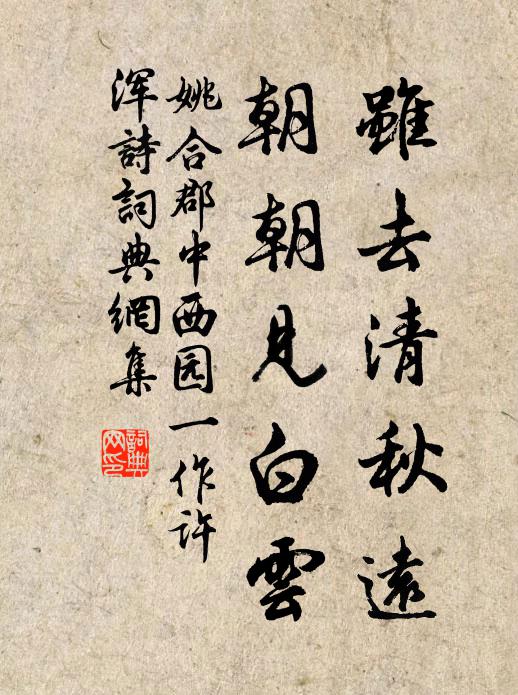 雖去清秋遠
朝朝見白雲
姚合郡中西园一作许
浑詩詞典網集
詞典
网印